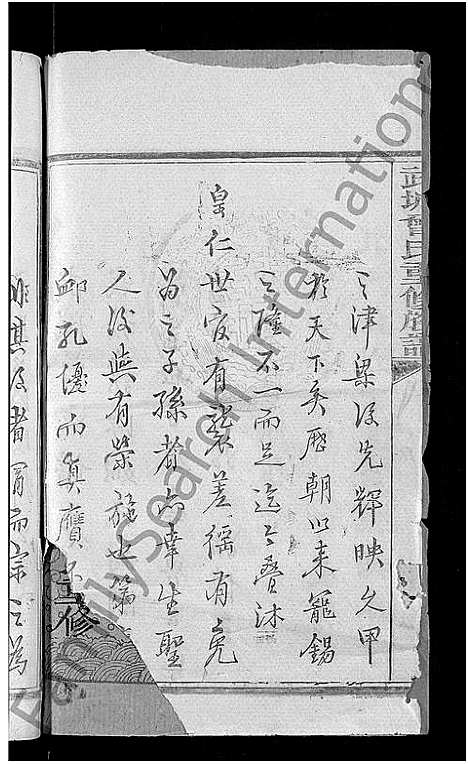 武城曾氏重修族譜
之津梁後先輝映久甲
於天下矣歷朝以來寵錫
之隆不一而足迄今疊沐
皇仁世官有襲差徭有免
為之子孫者亦幸生聖
人後與有榮施也第
卹孔優而真贗
重修
非其後者冒而宗之為
FamilySearch International